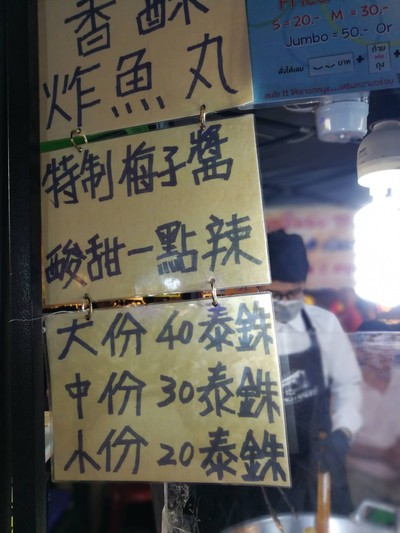 香酥
炸魚丸
特制梅子醬
酸甜一點辣
大份 40 泰銖
中份 30 泰銖
小份 20 泰銖
S = 20.- M = 30,-
Jumbo = 50.- Or
บาท
+
ถุง